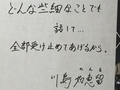 どんな些細なことでも
話して…
全部受け止めてあげるから。
川島 如恵留